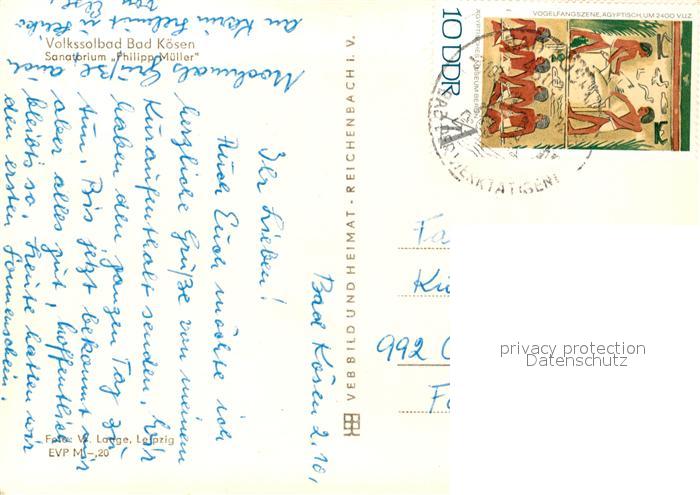 Volkssolbad Bad Kösen
Sanatorium „Philipp Müller"
Bad Kösen 2.10.
Ihr Lieben!
Auch Euch möchte ich
herzliche Grüße von meinem
Kuraufenthalt senden. Wir
haben den ganzen Tag zu
tun. Bis jetzt bekommt mir
aber alles gut, hoffentlich
bleibt's so. Heute hatten wir
den ersten Sonnenschein.
Nochmals Grüße, auch
an Karin, Helmut u.
von
Foto: W. Lange, Leipzig
EVP M –,20
VEB BILD UND HEIMAT · REICHENBACH I. V.
10 DDR
ÄGYPTISCHES MUSEUM BERLIN
VOGELFANGSZENE, ÄGYPTISCH, UM 2400 V.U.Z.
WERKTÄTIGEN
Fa
Kü
992
privacy protection
Datenschutz